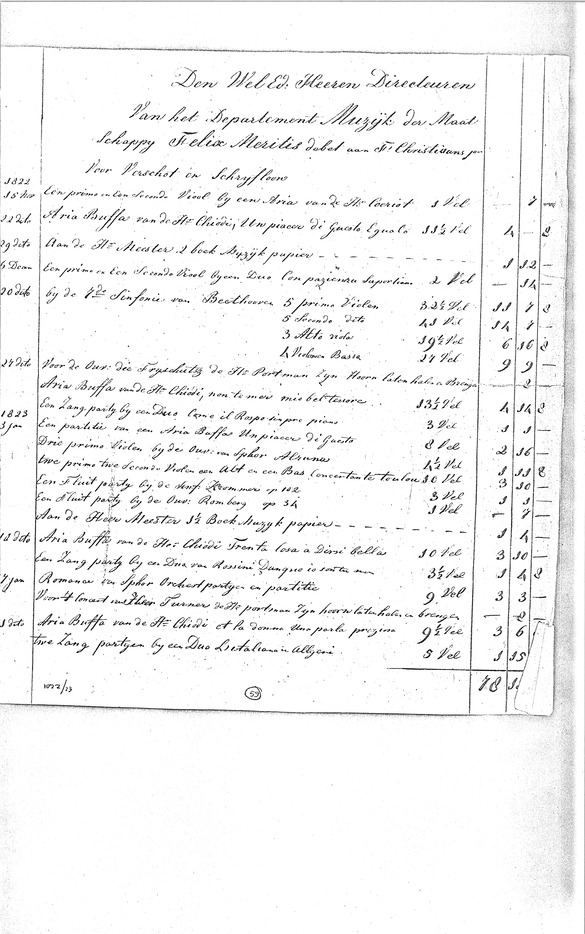 Den Wel Ed: Heeren Directeuren
Van het Departement Muzijk der Maat
Schappy Felix Meritis debet aan Fr Christiaans jr
Voor Verschot en Schryfloon
1822
15 Nov Een primo en Een Secondo Viool by een Aria van de Hr 1 Vel - 7 -
22 dito Aria Buffa van de Hr Chiodi, Un piacer di Questo Eguale 11½ Vel 4 - 8
29 dito Aan de Hr Meester 2 boek Muzijk papier - - - - 1 12 -
6 Decem Een primo en Een Secondo Viool by een Duo Con 2 Vel - 14
20 dito by de 7de Sinfonie van Beethoven 5 primo Violen 32½ Vel 11 7 8
5 Secondo dito 41 Vel 14 7 -
3 Alto viola 19½ Vel 6 16 8
4 Violonen Bassa 27 Vel 9 9 -
27 dito Voor de Ouv: die Fryschutz de Hr Portman Zyn Hoorn laten halen en Brengen - 2 -
Aria Buffa van de Hr Chiodi, non temer mio bel tesore 13½ Vel 4 14 8
1823
3 jan Een Zang party by een Duo Come il piano 3 Vel 1 1 -
Een partitie van een Aria Buffa Un piacer di Questo 8 Vel 2 16 -
Drie primo Violen by de Ouv: van Sphor Alruna 4½ Vel 1 11 8
twe primo twe Secondo Violen een Alt en een Bas Concertante toulou 10 Vel 3 10 -
Een Fluit party by de Sinf: Krommer op 102 3 Vel 1 1 -
Een Fluit party by de Ouv: Romberg op 34 1 Vel - 7 -
Aan de Heer Meester 1½ Boek Muzyk papier - - - - 1 4 -
10 dito Aria Buffa van de Hr Chiodi Trenta cosa a Dirsi bella 10 Vel 3 10 -
Een Zang party by een Duo van Rossini 3½ Vel 1 4 8
7 jan Romance van Sphor Orchest partyen en partitie 9 Vel 3 3 -
Voor 't Concert van Turner de Hr portman Zyn hoorn laten halen en brengen - 2 -
1 dito Aria Buffa van de Hr Chiodi et la donna Una parla 9½ Vel 3 6
twe Zang partyen by een Duo L'Italiana in Algeri 5 Vel 1 15
78
1022/23
59